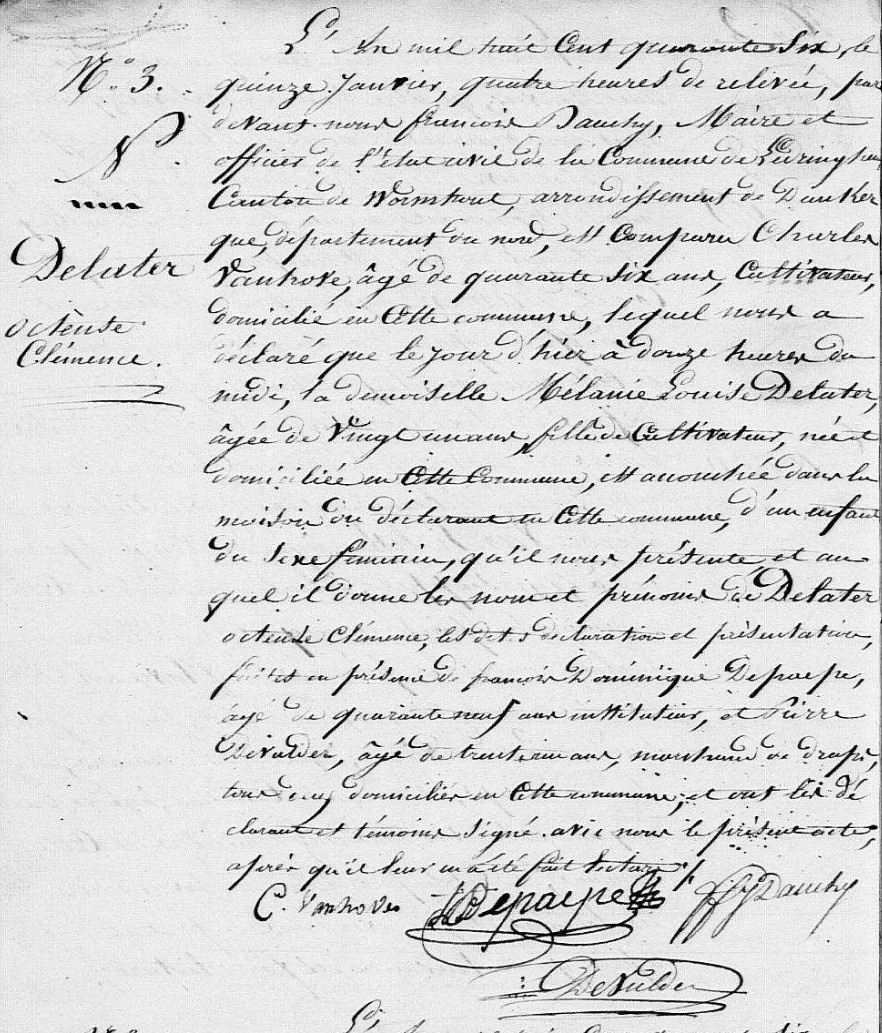 N.° 3.
N.
Delater
octense
Clémence.
L'An mil huit Cent quarante Six, le
quinze Janvier, quatre heures de relevée, par
devant nous françois Dauchy, Maire et
officier de l'état civil de la Commune de Ledringhem
Canton de Wormhout, arrondissement de Dunker
que, département du nord, est Comparu Charles
Vanhove, âgé de quarante Six ans, Cultivateur,
domicilié en Cette commune, lequel nous a
déclaré que le jour d'hier à douze heures du
midi, la demoiselle Mélanie Louise Delater,
âgée de Vingt un ans, fille de Cultivateur, née et
domiciliée en Cette Commune, est accouchée dans la
maison du déclarant en Cette commune, d'un enfant
du Sexe féminin, qu'il nous présente et au
quel il donne les nom et prénoms de Delater
octense Clémence, les dites déclaration et présentation,
faites en présence de françois Dominique Depaepe,
âgé de quarante neuf ans instituteur, et Pierre
DeVulder, âgé de trente un ans, marchand de draps,
tous deux domiciliés en Cette commune; et ont les dé
clarant et témoins Signé avec nous le présent acte,
après qu'il leur en a été fait lecture./.
C. Vanhove Depaepe Dauchy
DeVulder